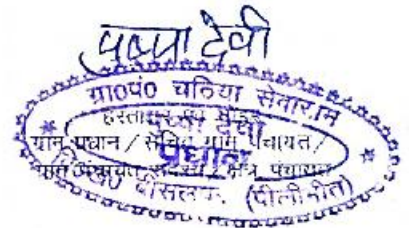 पुष्पा देवी
ग्रा०पं० चठिया सेवाराम
हस्ताक्षर एवं मोहर
ग्राम प्रधान / सचिव ग्राम पंचायत /
प्रधान
ग्राम पंचायत सदस्य / क्षेत्र पंचायत
बीसलपुर (पीलीभीत)